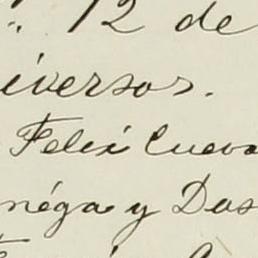 12 de
iversos.
Felix Cueva
néga y Das